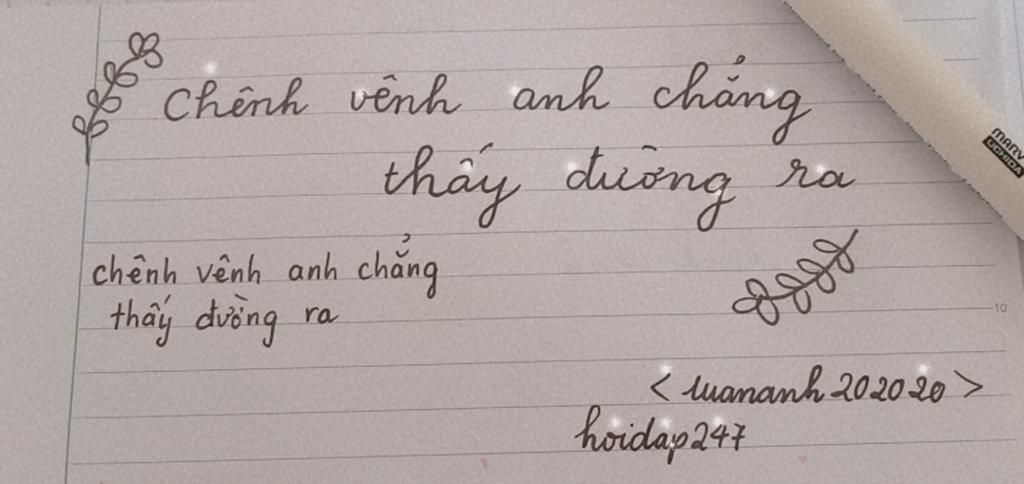 Chênh vênh anh chẳng
thấy đường ra
chênh vênh anh chẳng
thấy đường ra
10
<tuananh202020>
hoidap247
MARV
UCHIDA